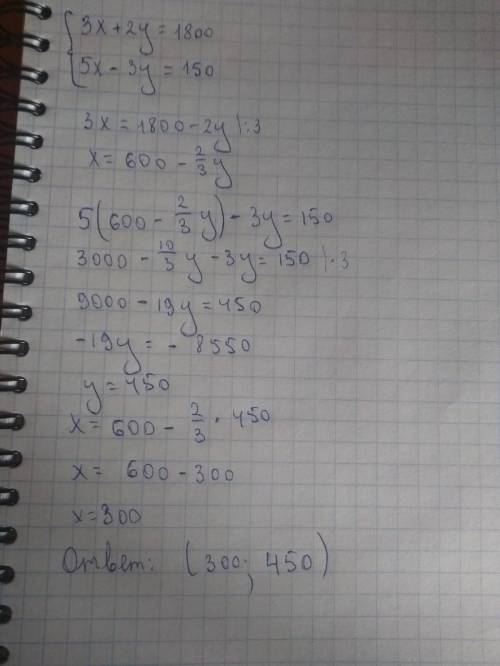 {3x+2y=1800
5x-3y=150
3x=1800-2y |:3
x=600-2/3y
5(600-2/3y)-3y=150
3000-10/3y-3y=150 |·3
9000-19y=450
-19y=-8550
y=450
x=600-2/3·450
x=600-300
x=300
Ответ: (300; 450)